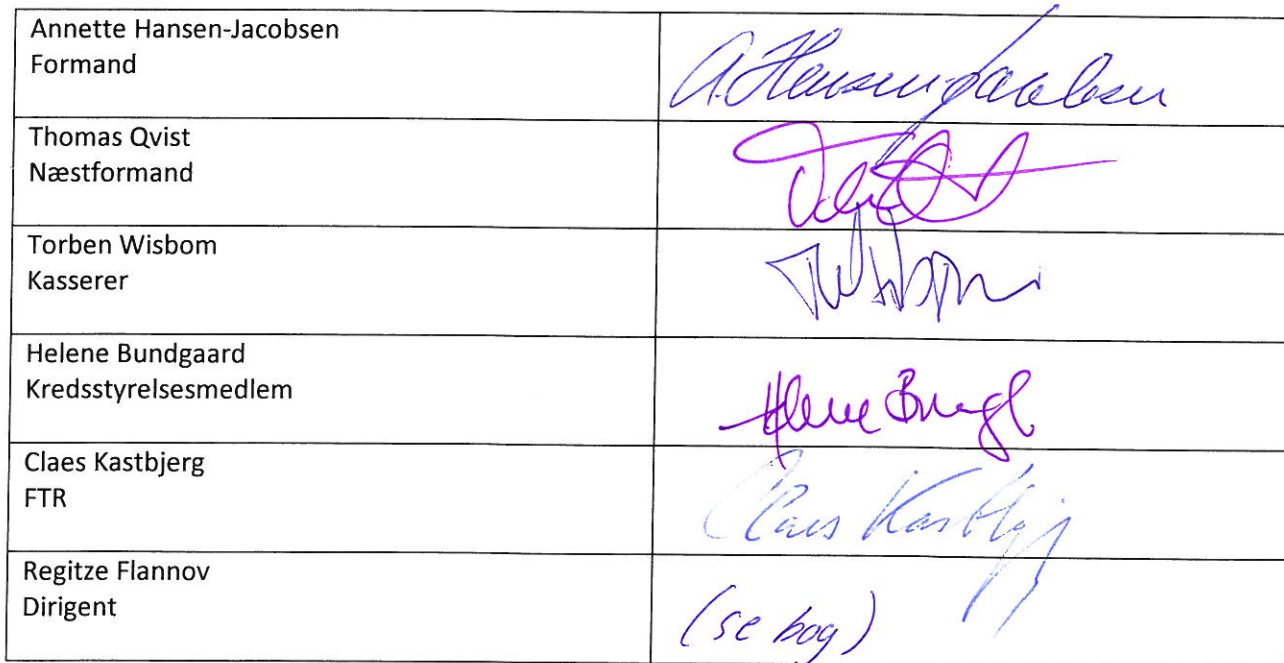 Annette Hansen-Jacobsen
Formand
A. Hansen-Jacobsen
Thomas Qvist
Næstformand
Torben Wisbom
Kasserer
TWisbom
Helene Bundgaard
Kredsstyrelsesmedlem
Helene
Claes Kastbjerg
FTR
Claes Kastbjerg
Regitze Flannov
Dirigent
(se bog)